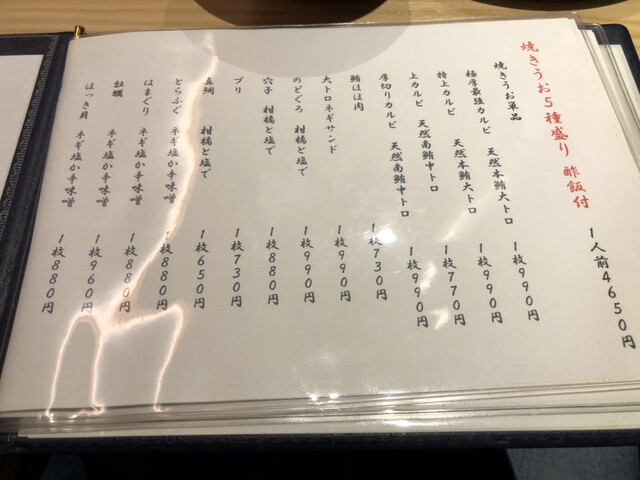 焼きうお5種盛り 酢飯付 1人前4650円
焼きうお単品
極厚最強カルビ 天然本鮪大トロ 1枚990円
特上カルビ 天然本鮪大トロ 1枚990円
上カルビ 天然南鮪中トロ 1枚770円
厚切りカルビ 天然南鮪中トロ 1枚990円
鮪ほほ肉 1枚730円
大トロネギサンド 1枚990円
のどぐろ 柑橘と塩で 1枚990円
穴子 柑橘と塩で 1枚880円
ブリ 1枚730円
真鯛 柑橘と塩で 1枚650円
とらふぐ ネギ塩か辛味噌 1枚880円
はまぐり ネギ塩か辛味噌 1枚880円
牡蠣 ネギ塩か辛味噌 1枚960円
ほっき貝 ネギ塩か辛味噌 1枚880円